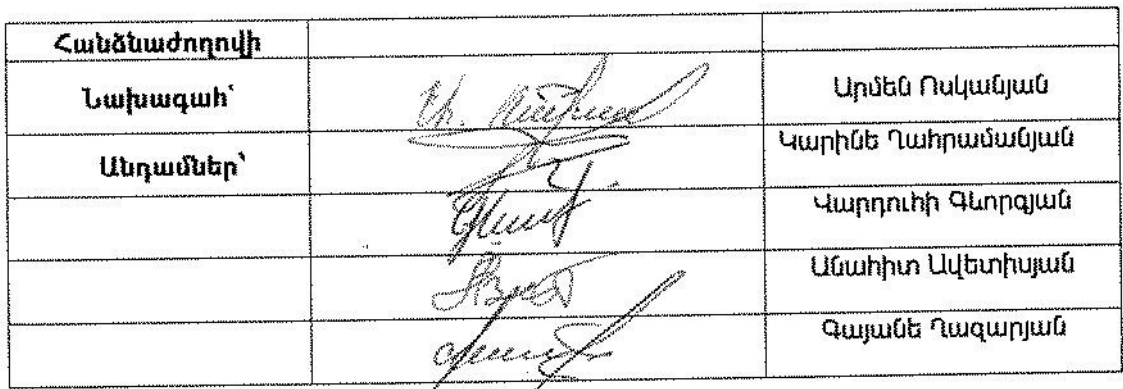 Հանձնաժողովի
Նախագահ՝ Արմեն Ոսկանյան
Անդամներ՝ Կարինե Ղահրամանյան
Վարդուհի Գևորգյան
Անահիտ Ավետիսյան
Գայանե Ղազարյան